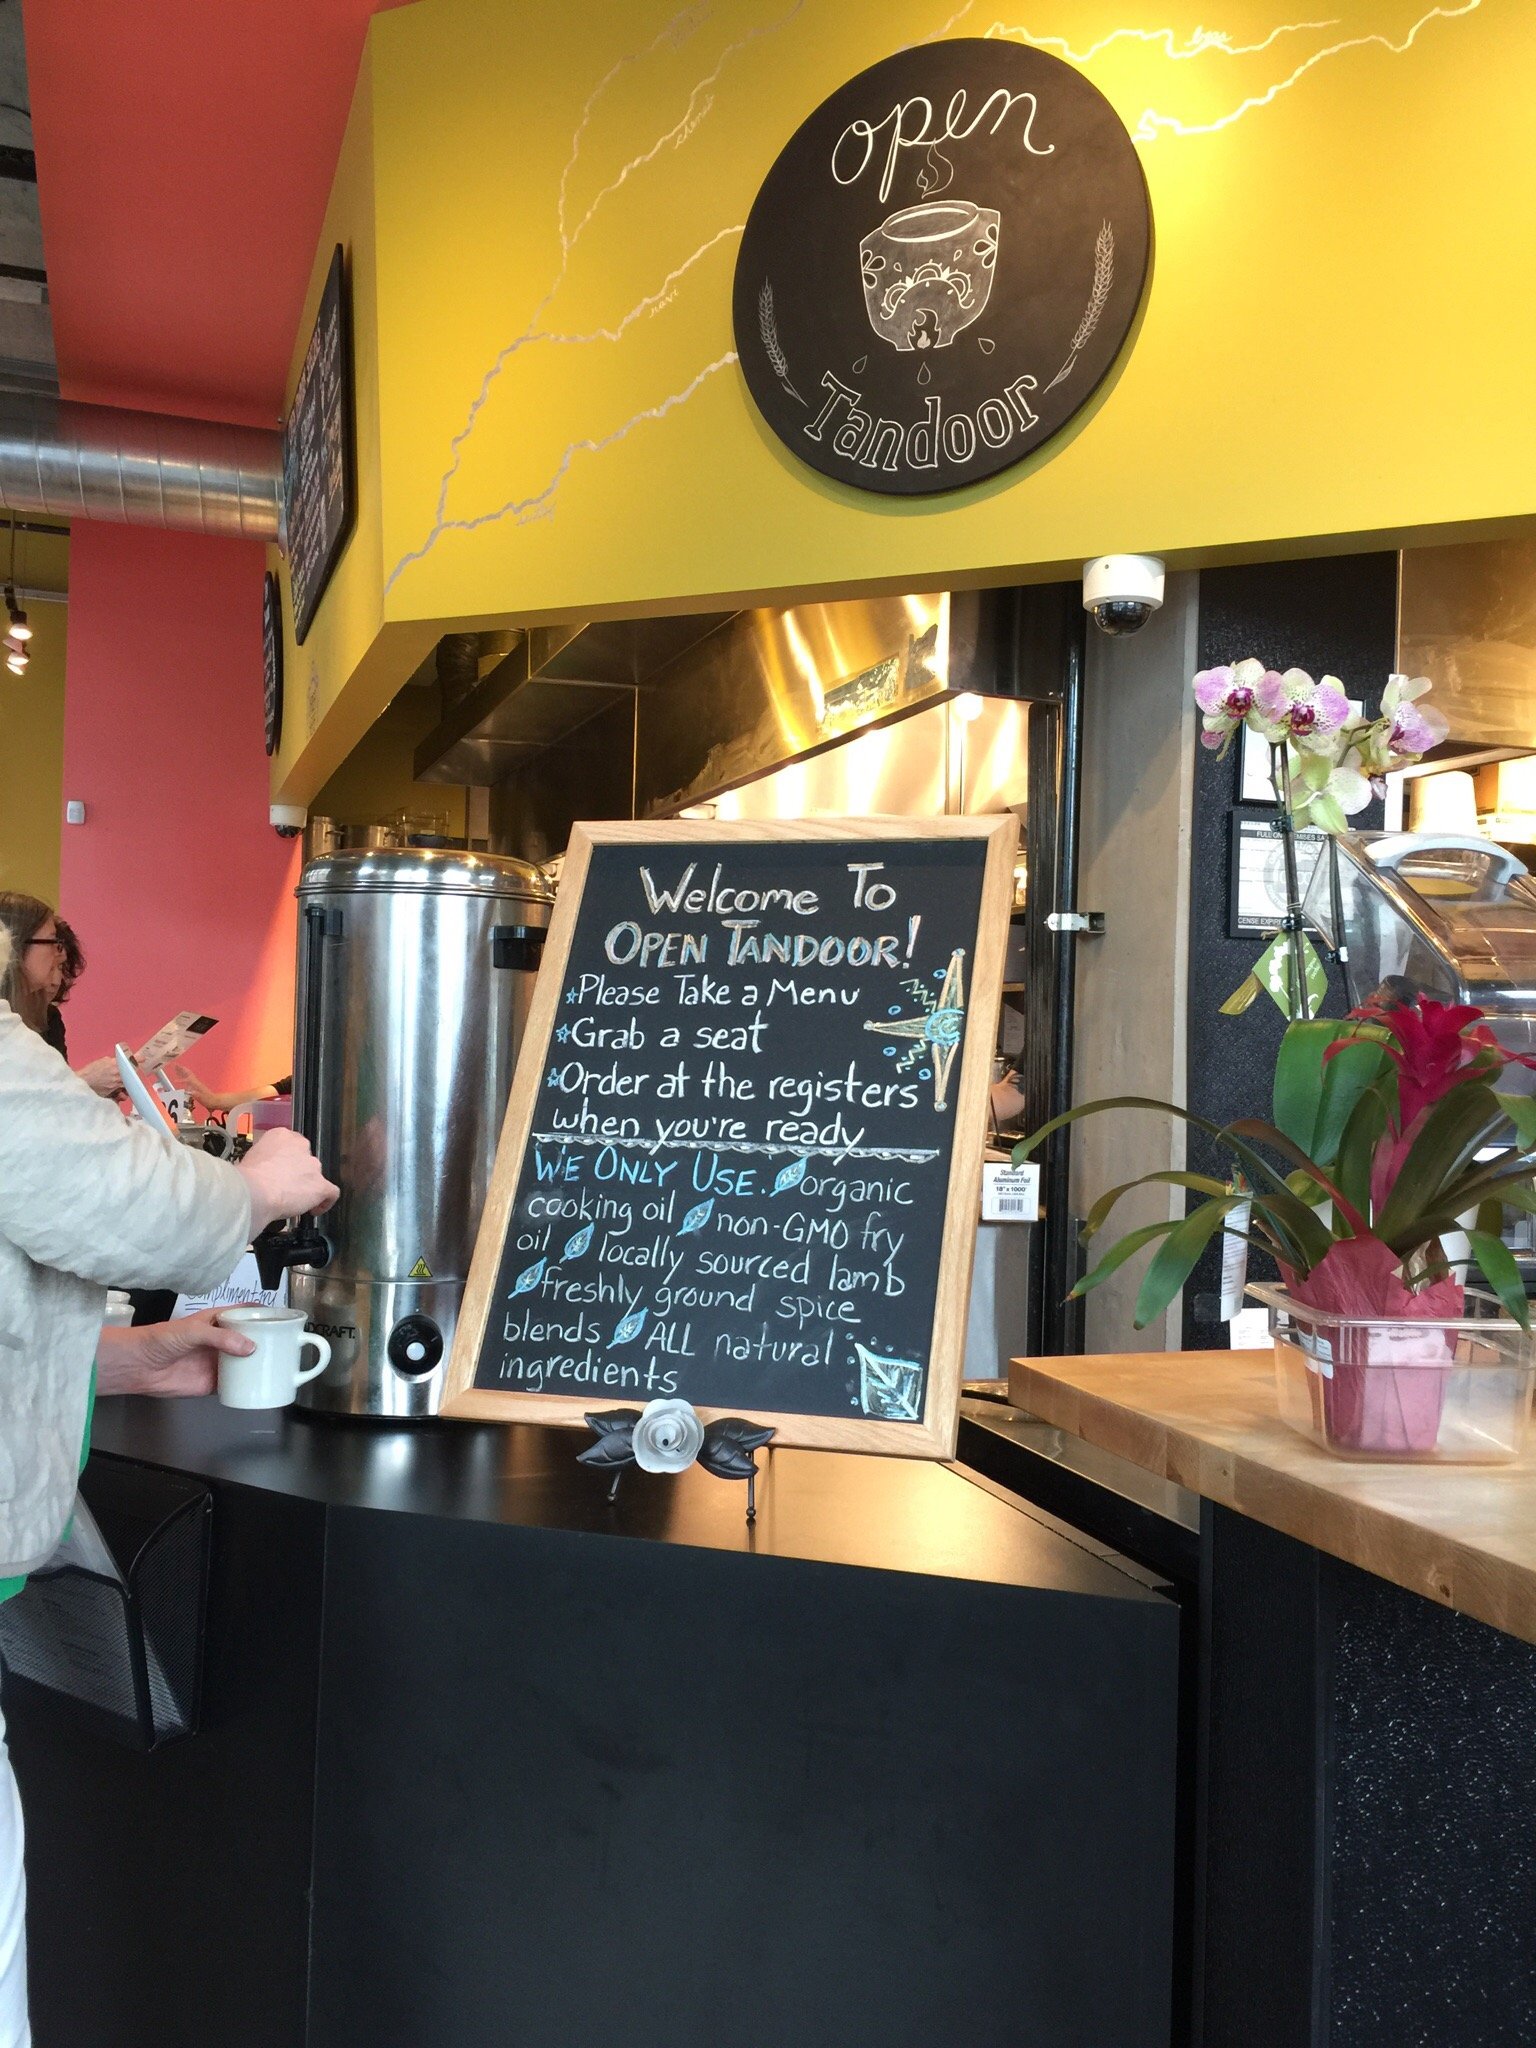 open
Tandoor
ravi
Welcome To
OPEN TANDOOR!
Please Take a Menu
Grab a seat
Order at the registers
when you're ready
WE ONLY USE. organic
cooking oil non-GMO fry
oil locally sourced lamb
freshly ground spice
blends ALL natural
ingredients
Standard
Aluminum Foil
18" x 1000'